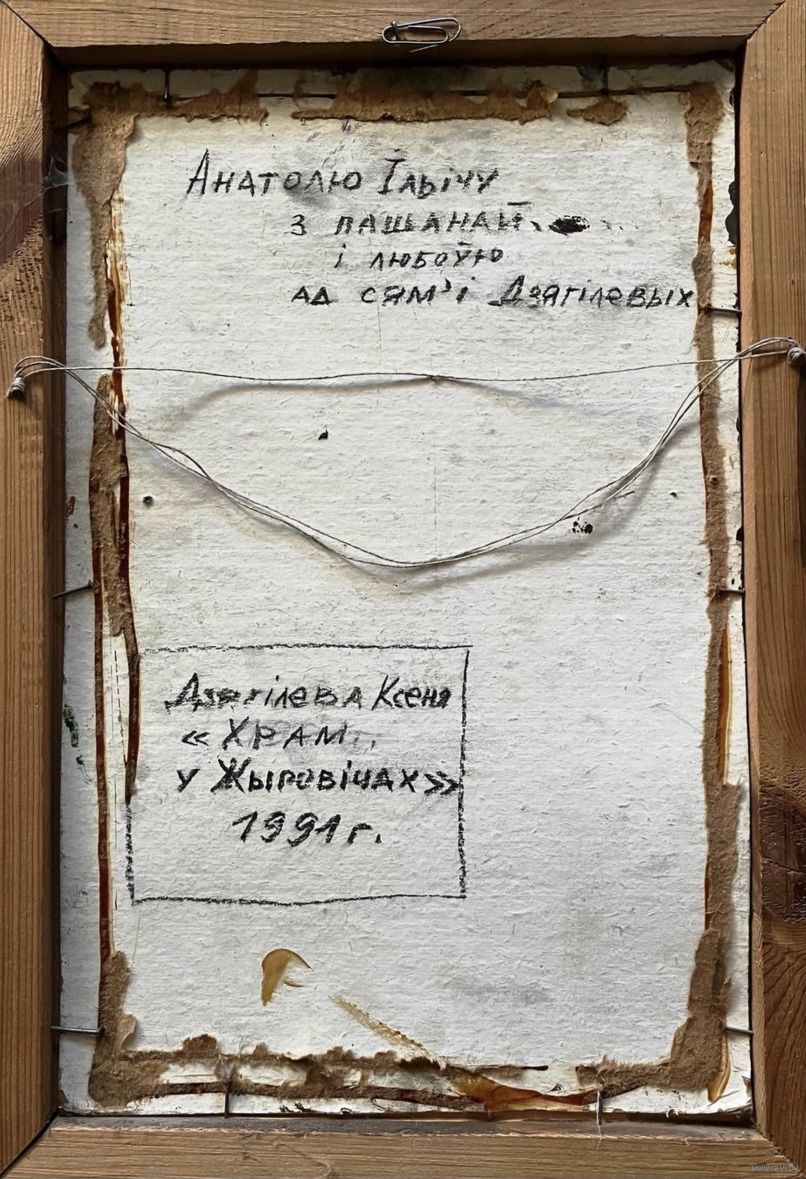 Анатолю Ільічу
з пашанай
і любоўю
ад сям'і Дзягілевых
Дзягілева Ксеня
«Храм
у Жыровічах»
1991 г.